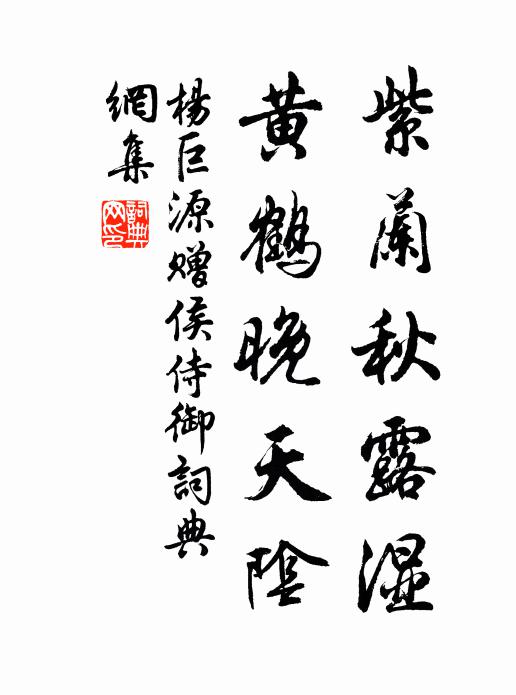 紫蘭秋露湿
黃鶴晚天陰
楊巨源贈侯侍御詞典
網集
詞典
网印